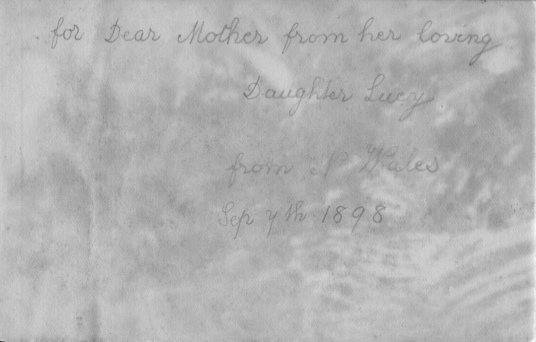 for Dear Mother from her loving
Daughter Lucy
from N Wales
Sep 7th 1898